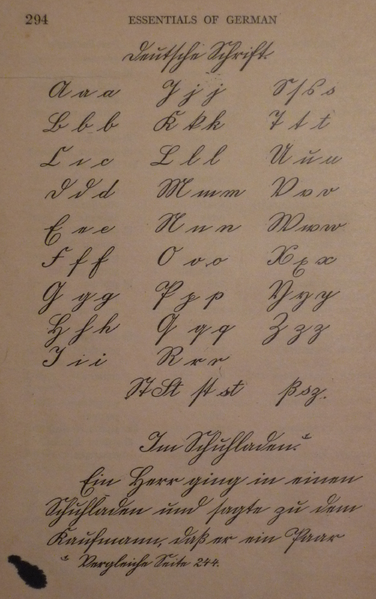 294 ESSENTIALS OF GERMAN
Deutsche Schrift.
A a a J j j S ſ s s
B b b K k k T t t
C c c L l l U u u
D d d M m m V v v
E e e N n n W w w
F f f O o o X x x
G g g P p p Y y y
H h h Q q q Z z z
I i i R r r
St St st st ß sz.
Im Schuhladen.¹
Ein Herr ging in einen
Schuhladen und sagte zu dem
Kaufmann, daß er ein Paar
¹ Vergleiche Seite 244.